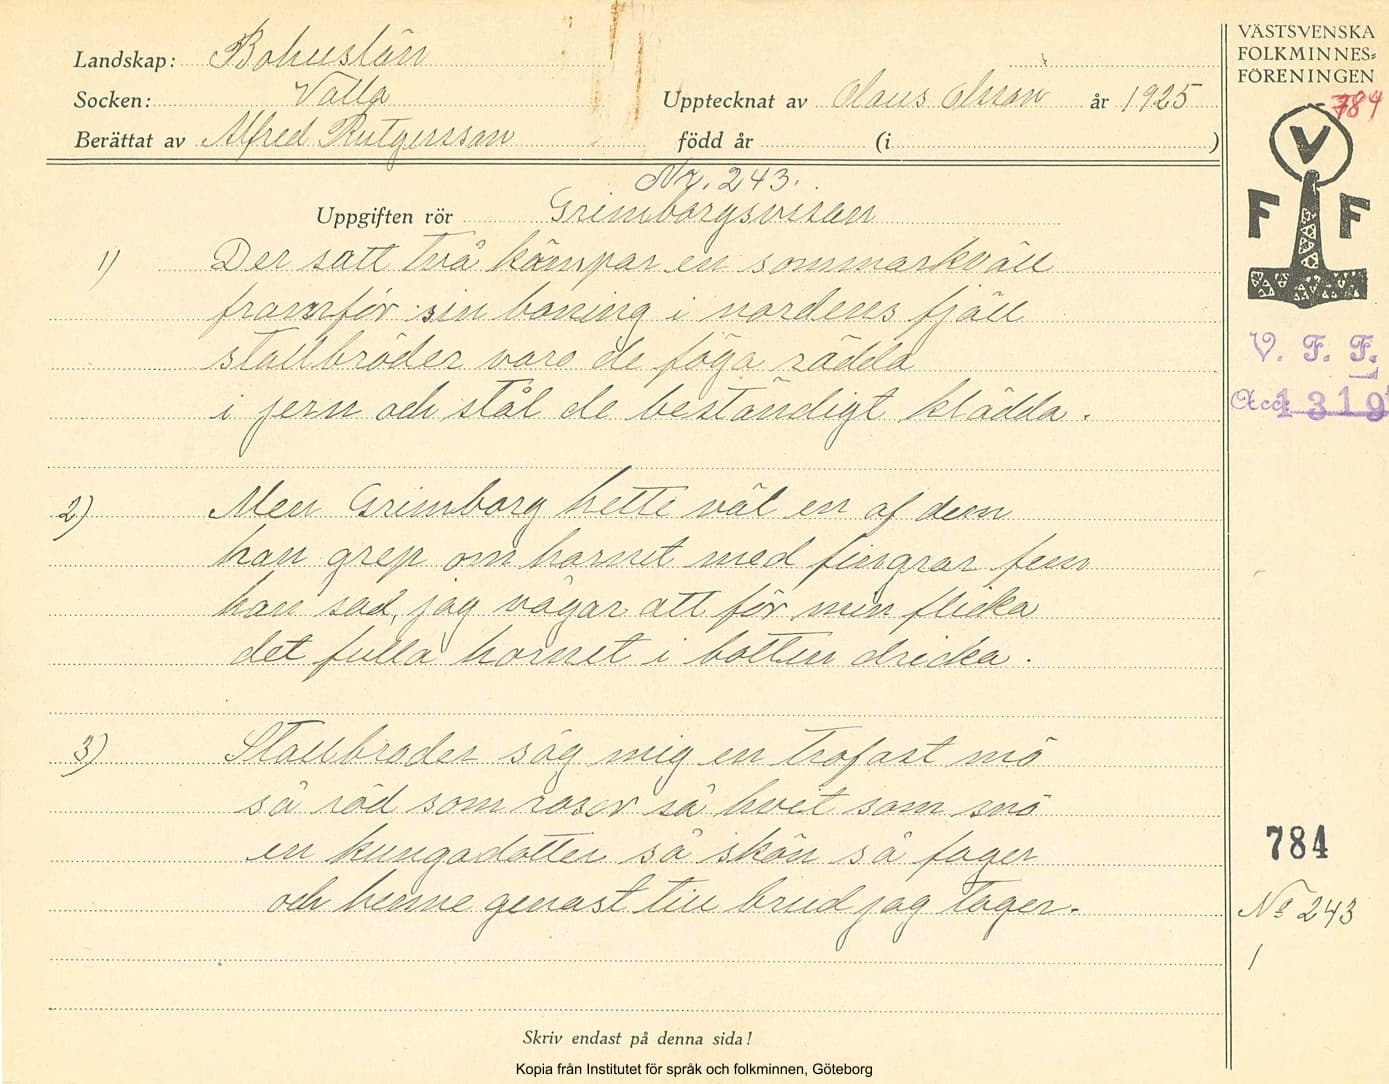 Landskap: Bohuslän
Socken: Valla
Upptecknat av Olaus Olsson år 1925
Berättat av Alfred Rutgersson
född år (i )
Nr. 243.
Uppgiften rör Grimborgsvisan
1) Der satt två kämpar en sommarkväll
framför sin boning i nordens fjäll
stallbröder voro de föga rädda
i jern och stål de beständigt klädda.
2) Men Grimborg hette väl en af dem
han grep om hornet med fingrar fem
han sad, jag vågar att för min flicka
det fulla hornet i botten dricka.
3) Stallbroder säg mig en trofast mö
så röd som rosor så hvit som snö
en kungadotter så skön så fager
och henne genast till brud jag tager.
Skriv endast på denna sida!
Kopia från Institutet för språk och folkminnen, Göteborg
VÄSTSVENSKA
FOLKMINNES=
FÖRENINGEN
784
V
F F
V. F. F.
Acc: 1319
784
No 243
1